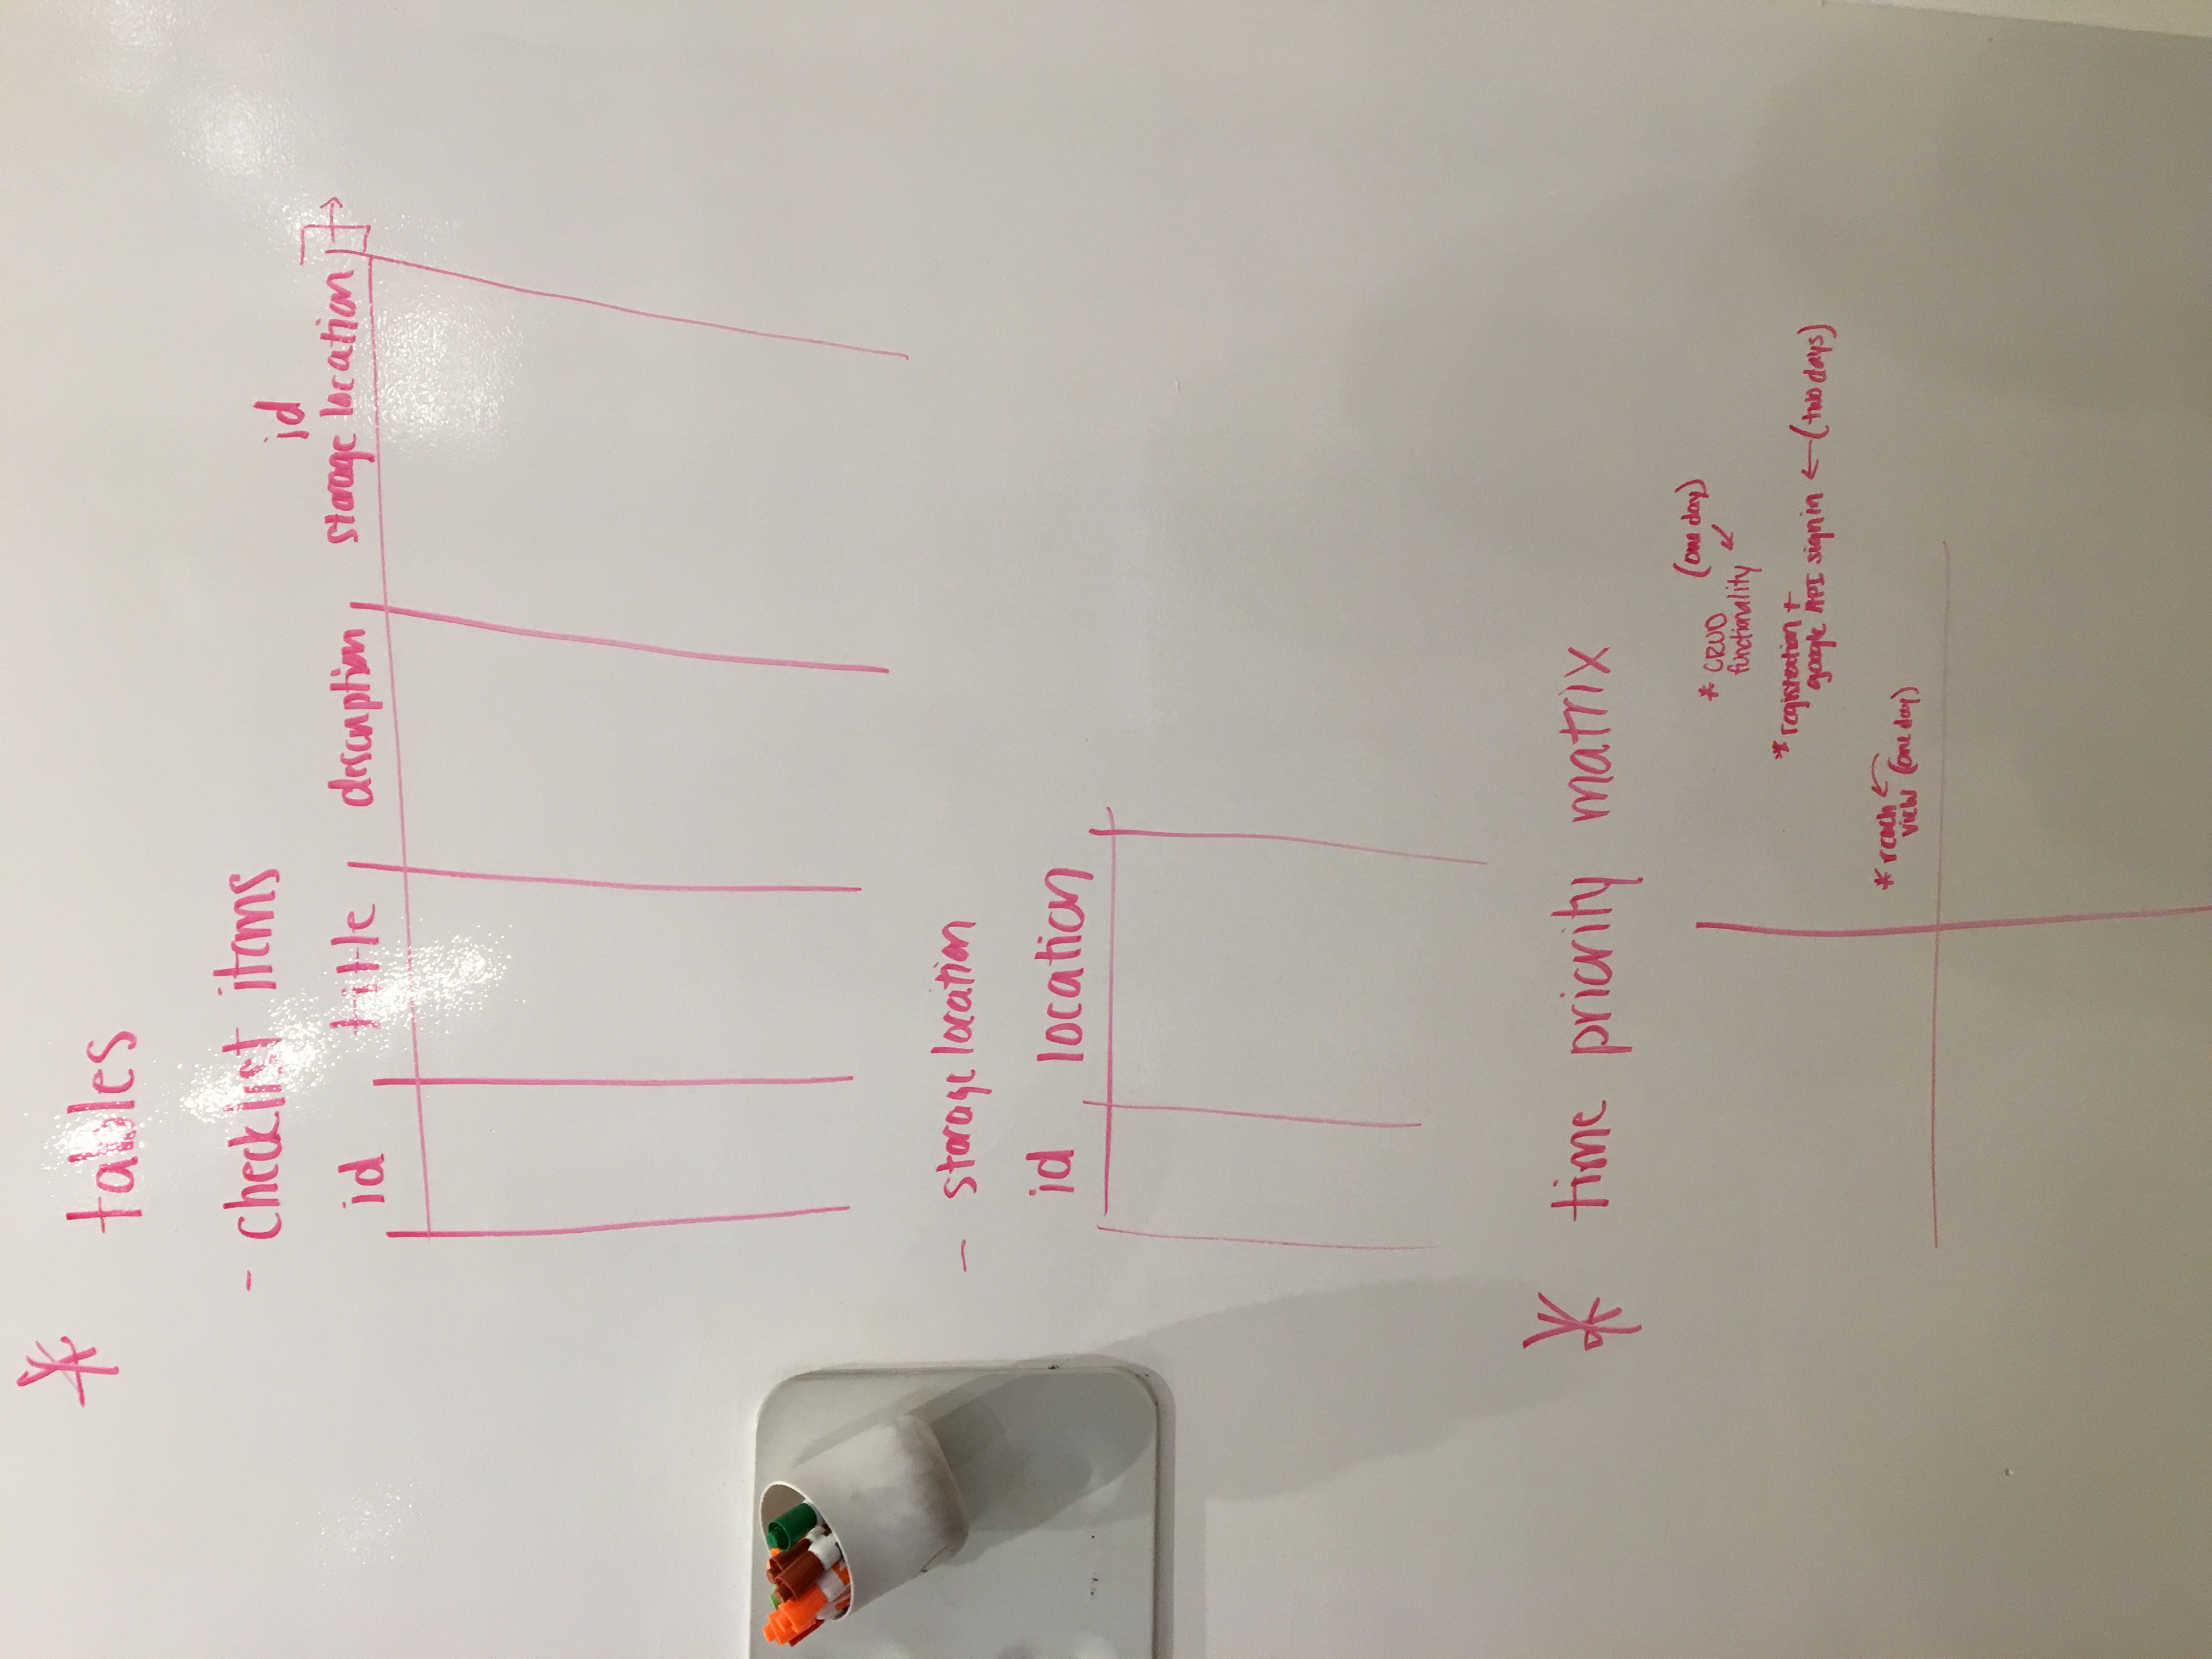 * tables
- checklist items
id
id title description storage location
- storage location
id location
* time priority matrix
(one day)
* CRUD
functionality
* registration +
google API sign in ← (two days)
* reach
view (one day)